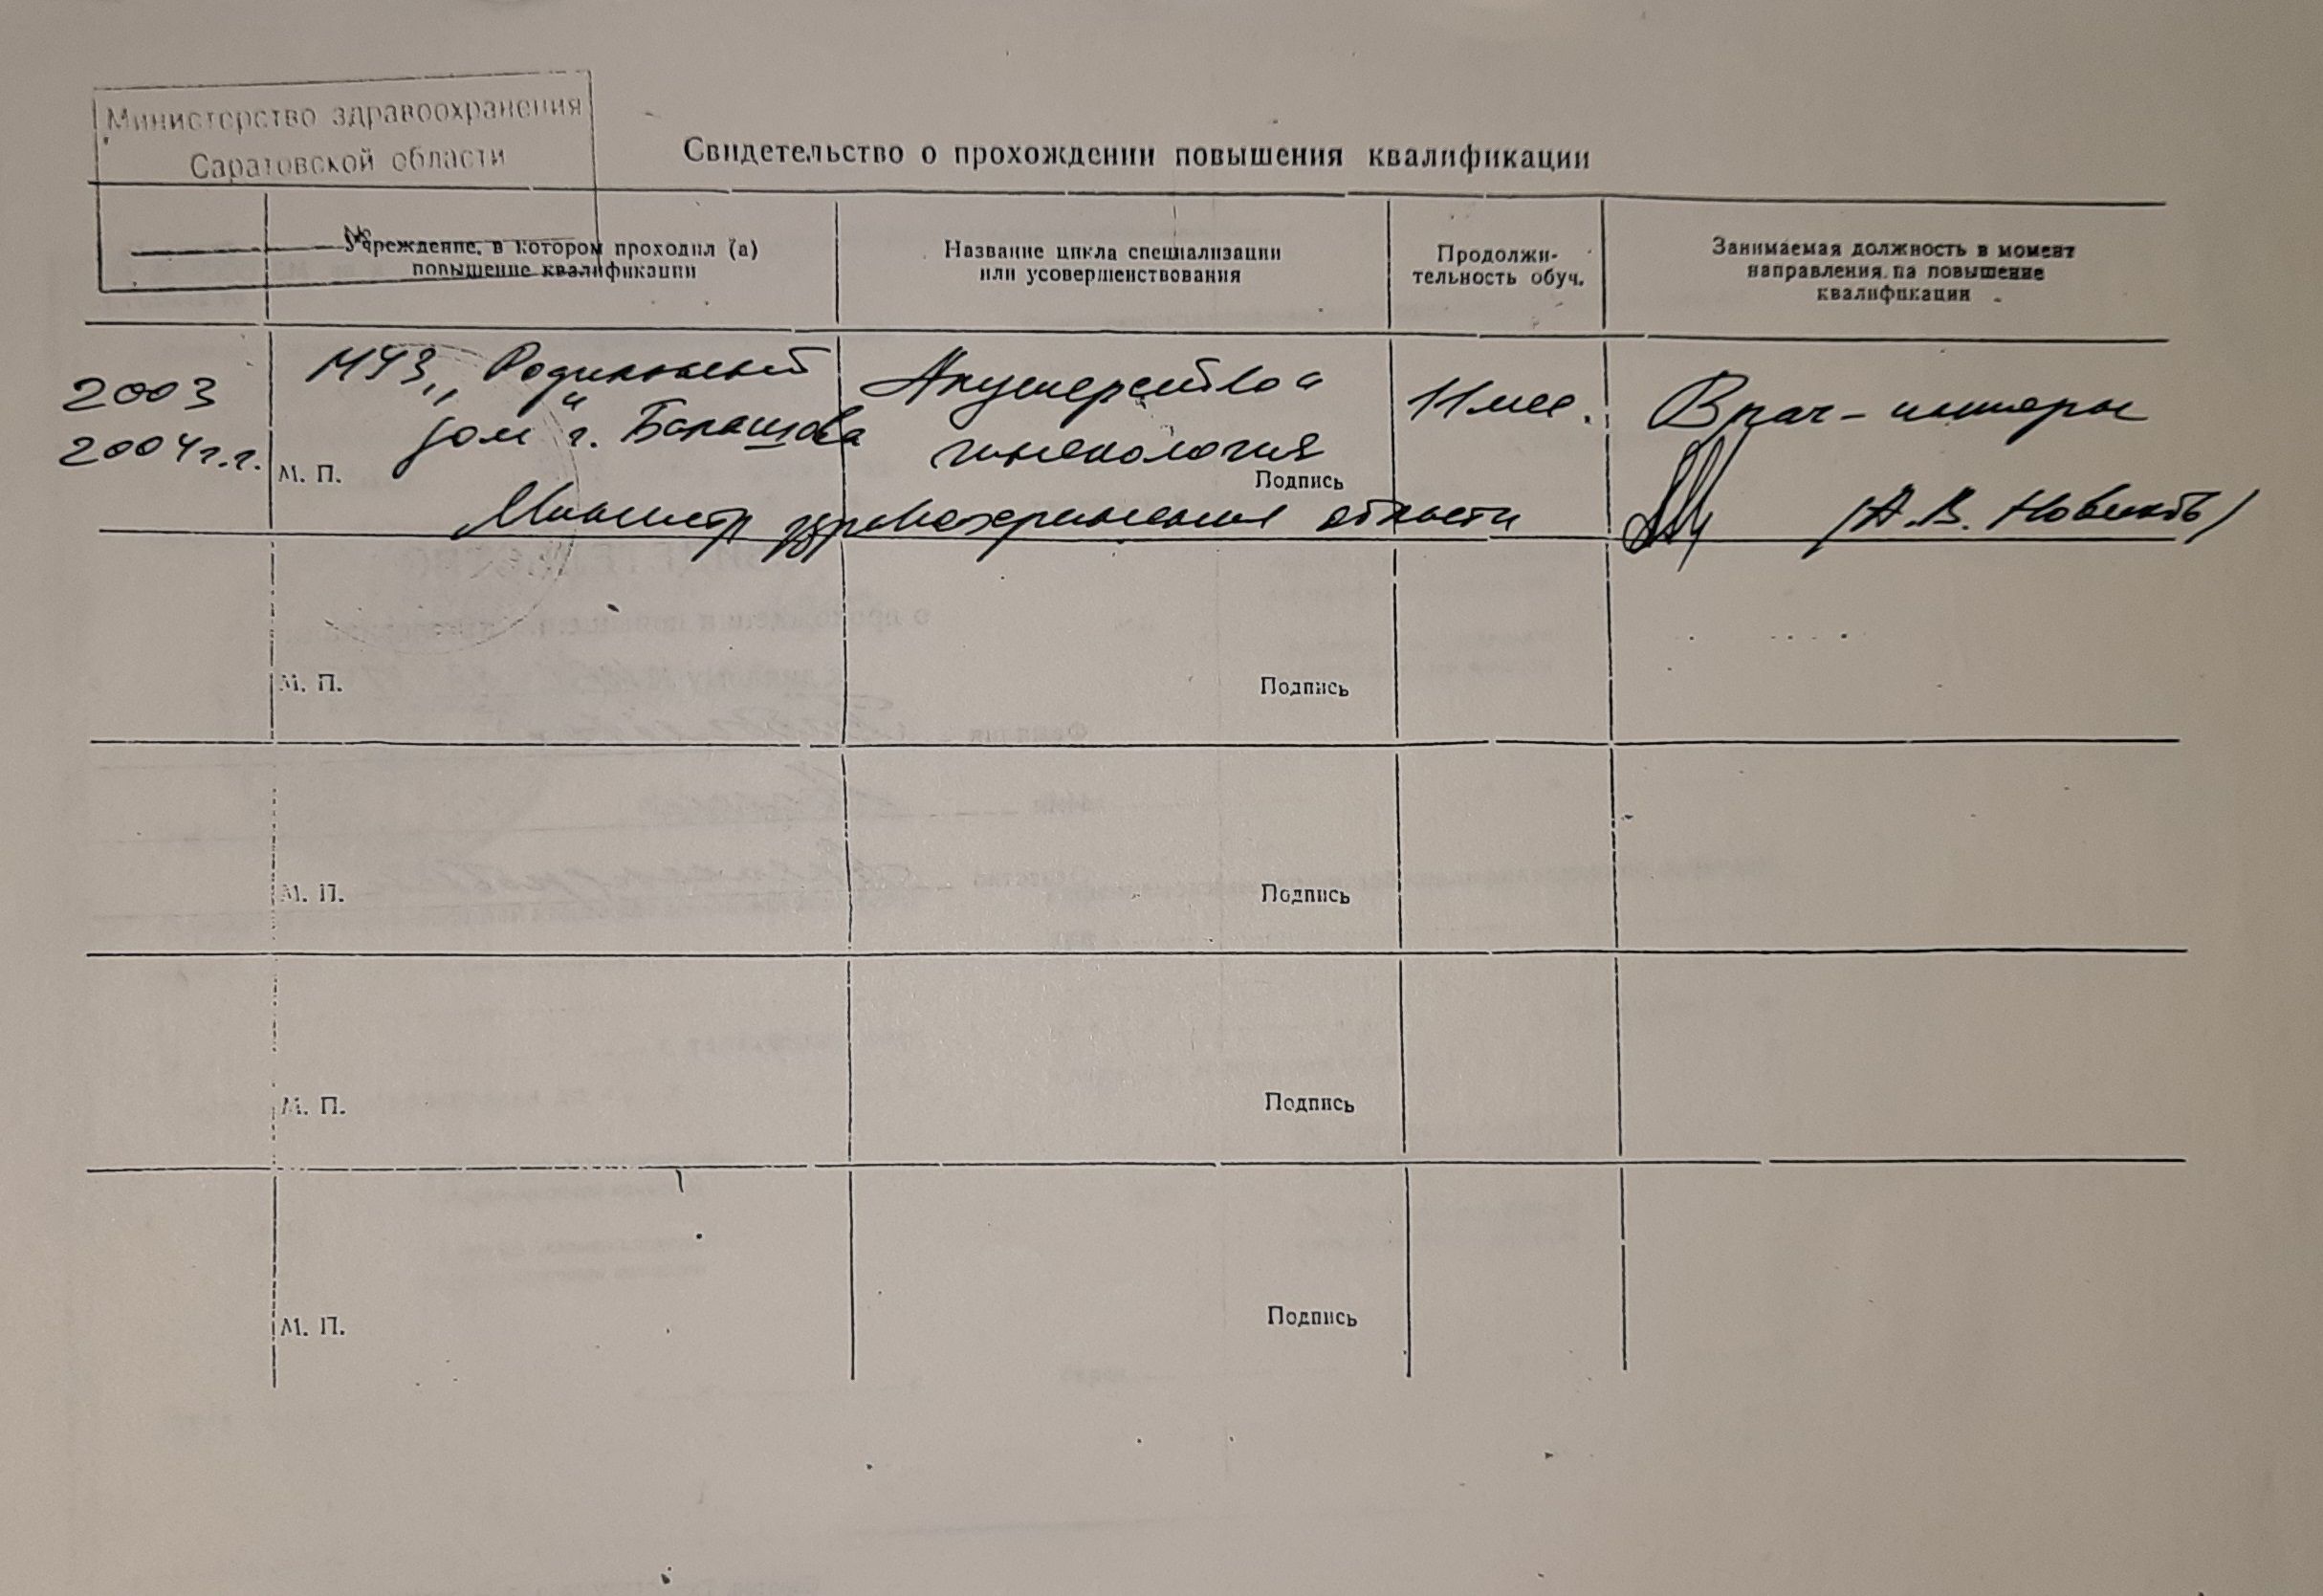 Министерство здравоохранения
Саратовской области
Свидетельство о прохождении повышения квалификации
Учреждение, в котором проходил (а)
повышение квалификации
Название цикла специализации
или усовершенствования
Продолжи-
тельность обуч.
Занимаемая должность в момент
направления на повышение
квалификации
2003
2004 г.г.
МУЗ „Родильный
дом“ г. Балашова
Акушерство и
гинекология
11 мес.
Врач-интерн
М. П.
Подпись
Министр здравоохранения области
(А.В. Новиков)
М. П.
Подпись
М. П.
Подпись
М. П.
Подпись
М. П.
Подпись